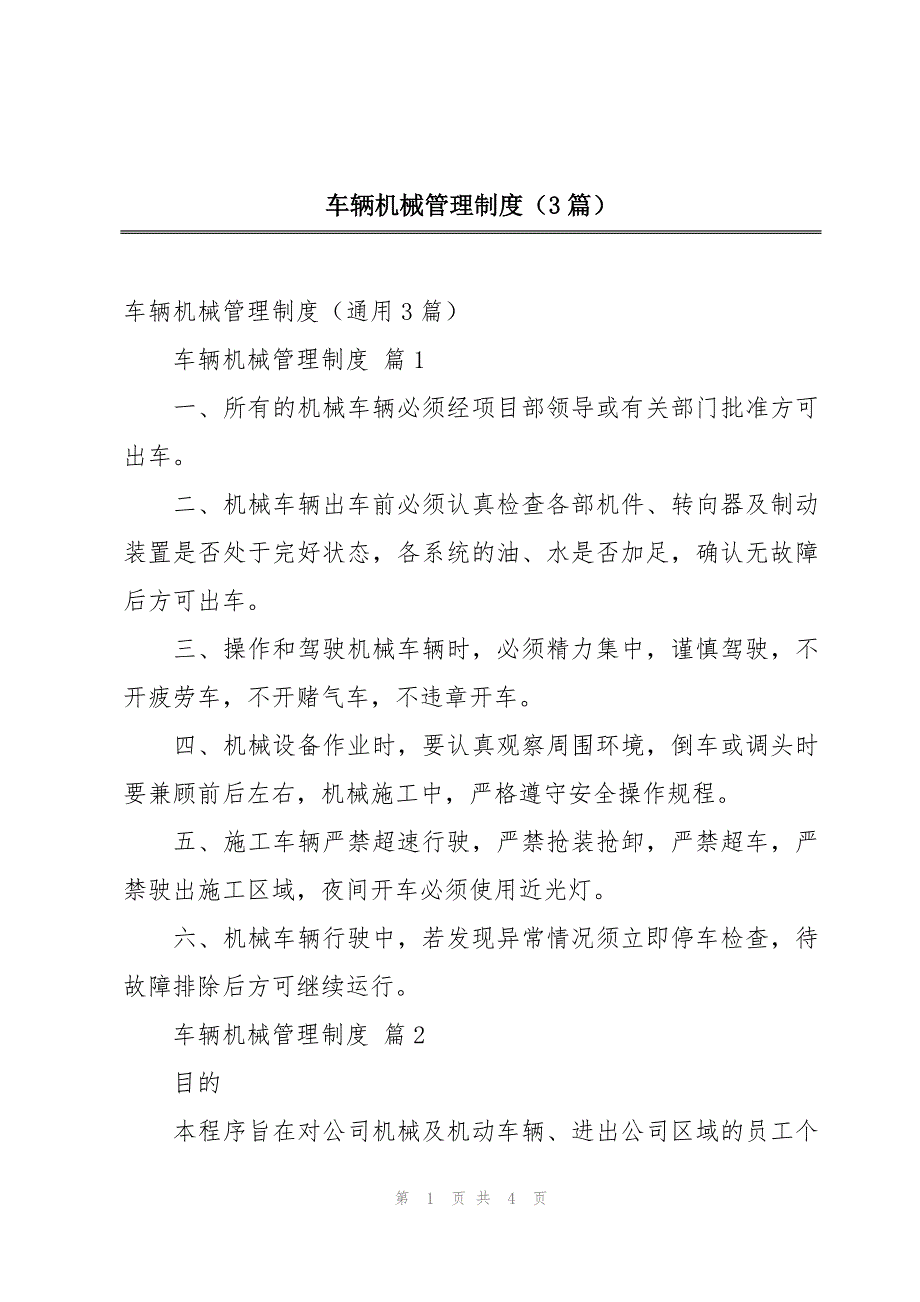 车辆机械管理制度（3篇）
车辆机械管理制度（通用3篇）
车辆机械管理制度 篇1
一、所有的机械车辆必须经项目部领导或有关部门批准方可
出车。
二、机械车辆出车前必须认真检查各部机件、转向器及制动
装置是否处于完好状态，各系统的油、水是否加足，确认无故障
后方可出车。
三、操作和驾驶机械车辆时，必须精力集中，谨慎驾驶，不
开疲劳车，不开赌气车，不违章开车。
四、机械设备作业时，要认真观察周围环境，倒车或调头时
要兼顾前后左右，机械施工中，严格遵守安全操作规程。
五、施工车辆严禁超速行驶，严禁抢装抢卸，严禁超车，严
禁驶出施工区域，夜间开车必须使用近光灯。
六、机械车辆行驶中，若发现异常情况须立即停车检查，待
故障排除后方可继续运行。
车辆机械管理制度 篇2
目的
本程序旨在对公司机械及机动车辆、进出公司区域的员工个
第 1 页 共 4 页